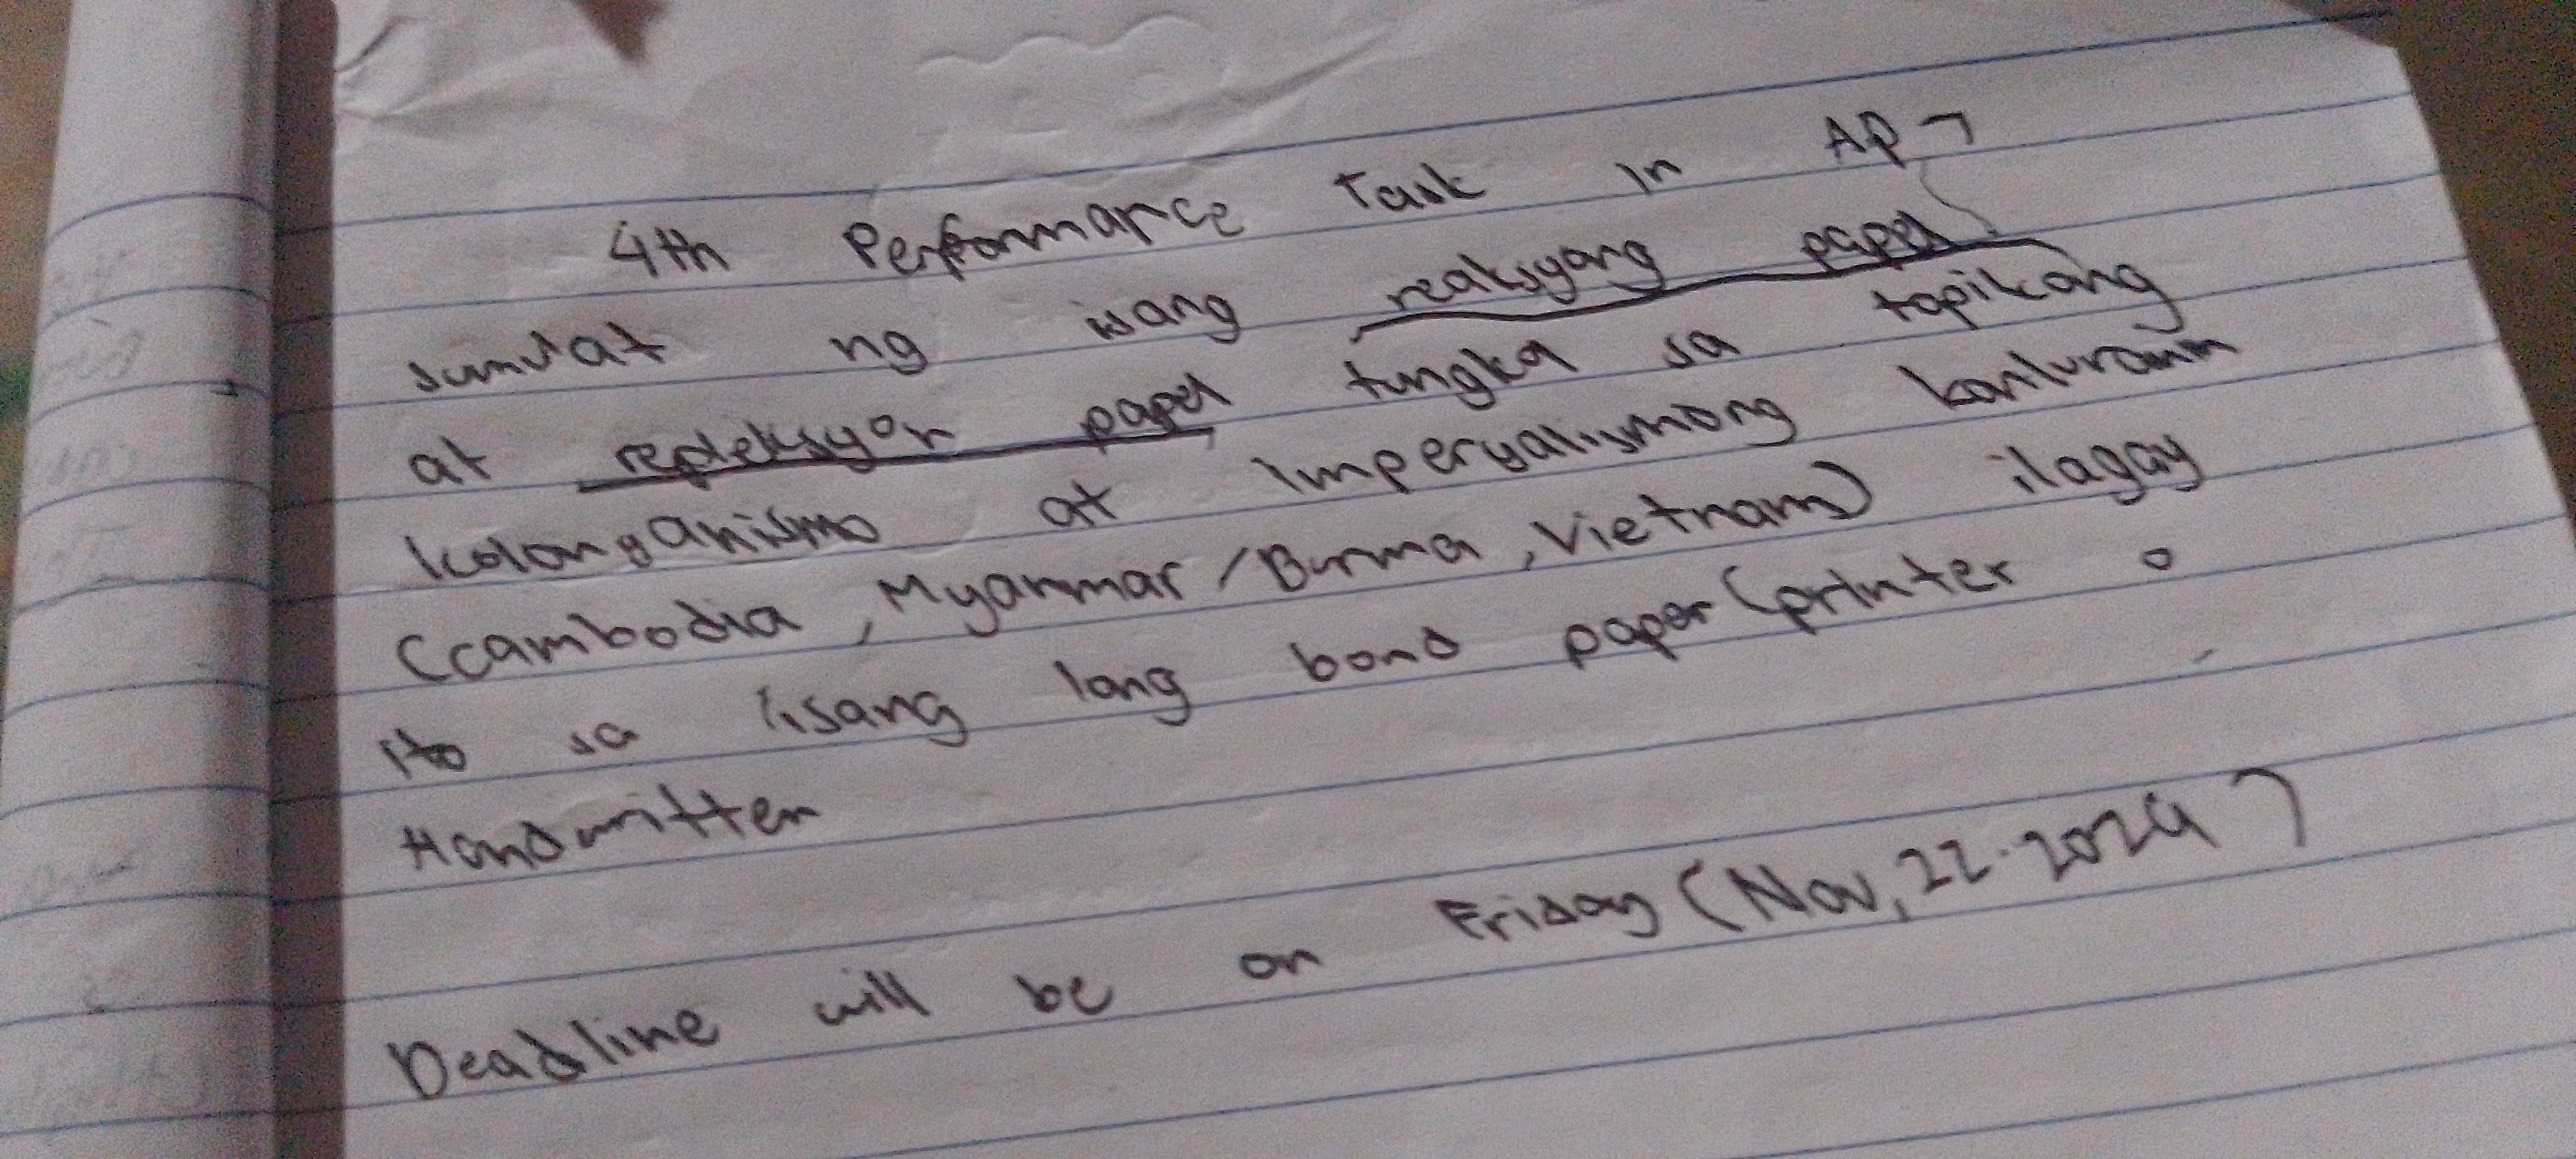 4th Performance Task in AP 7
sumulat ng isang reaksyong papel
at repleksyon papel tungkol sa topikang
kolonyanismo at Imperyalismong kanluranin
(Cambodia, Myanmar/Burma, Vietnam) ilagay
ito sa iisang lang bond paper (printer o
Handwritten
Deadline will be on Friday (Nov, 22. 2024)